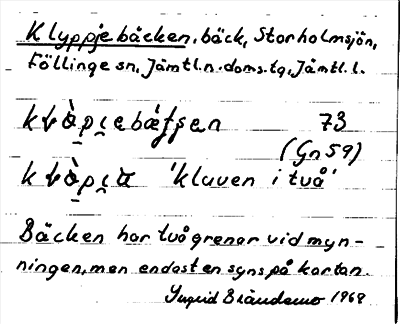 Klyppjebäcken, bäck, Storholmsjön,
Föllinge sn, Jämtl.n. doms.tg, Jämtl.l.
73
(Gn 59)
'kluven i två'
Bäcken har två grenar vid myn-
ningen, men endast en syns på kartan.
Ingrid Brändemo 1969